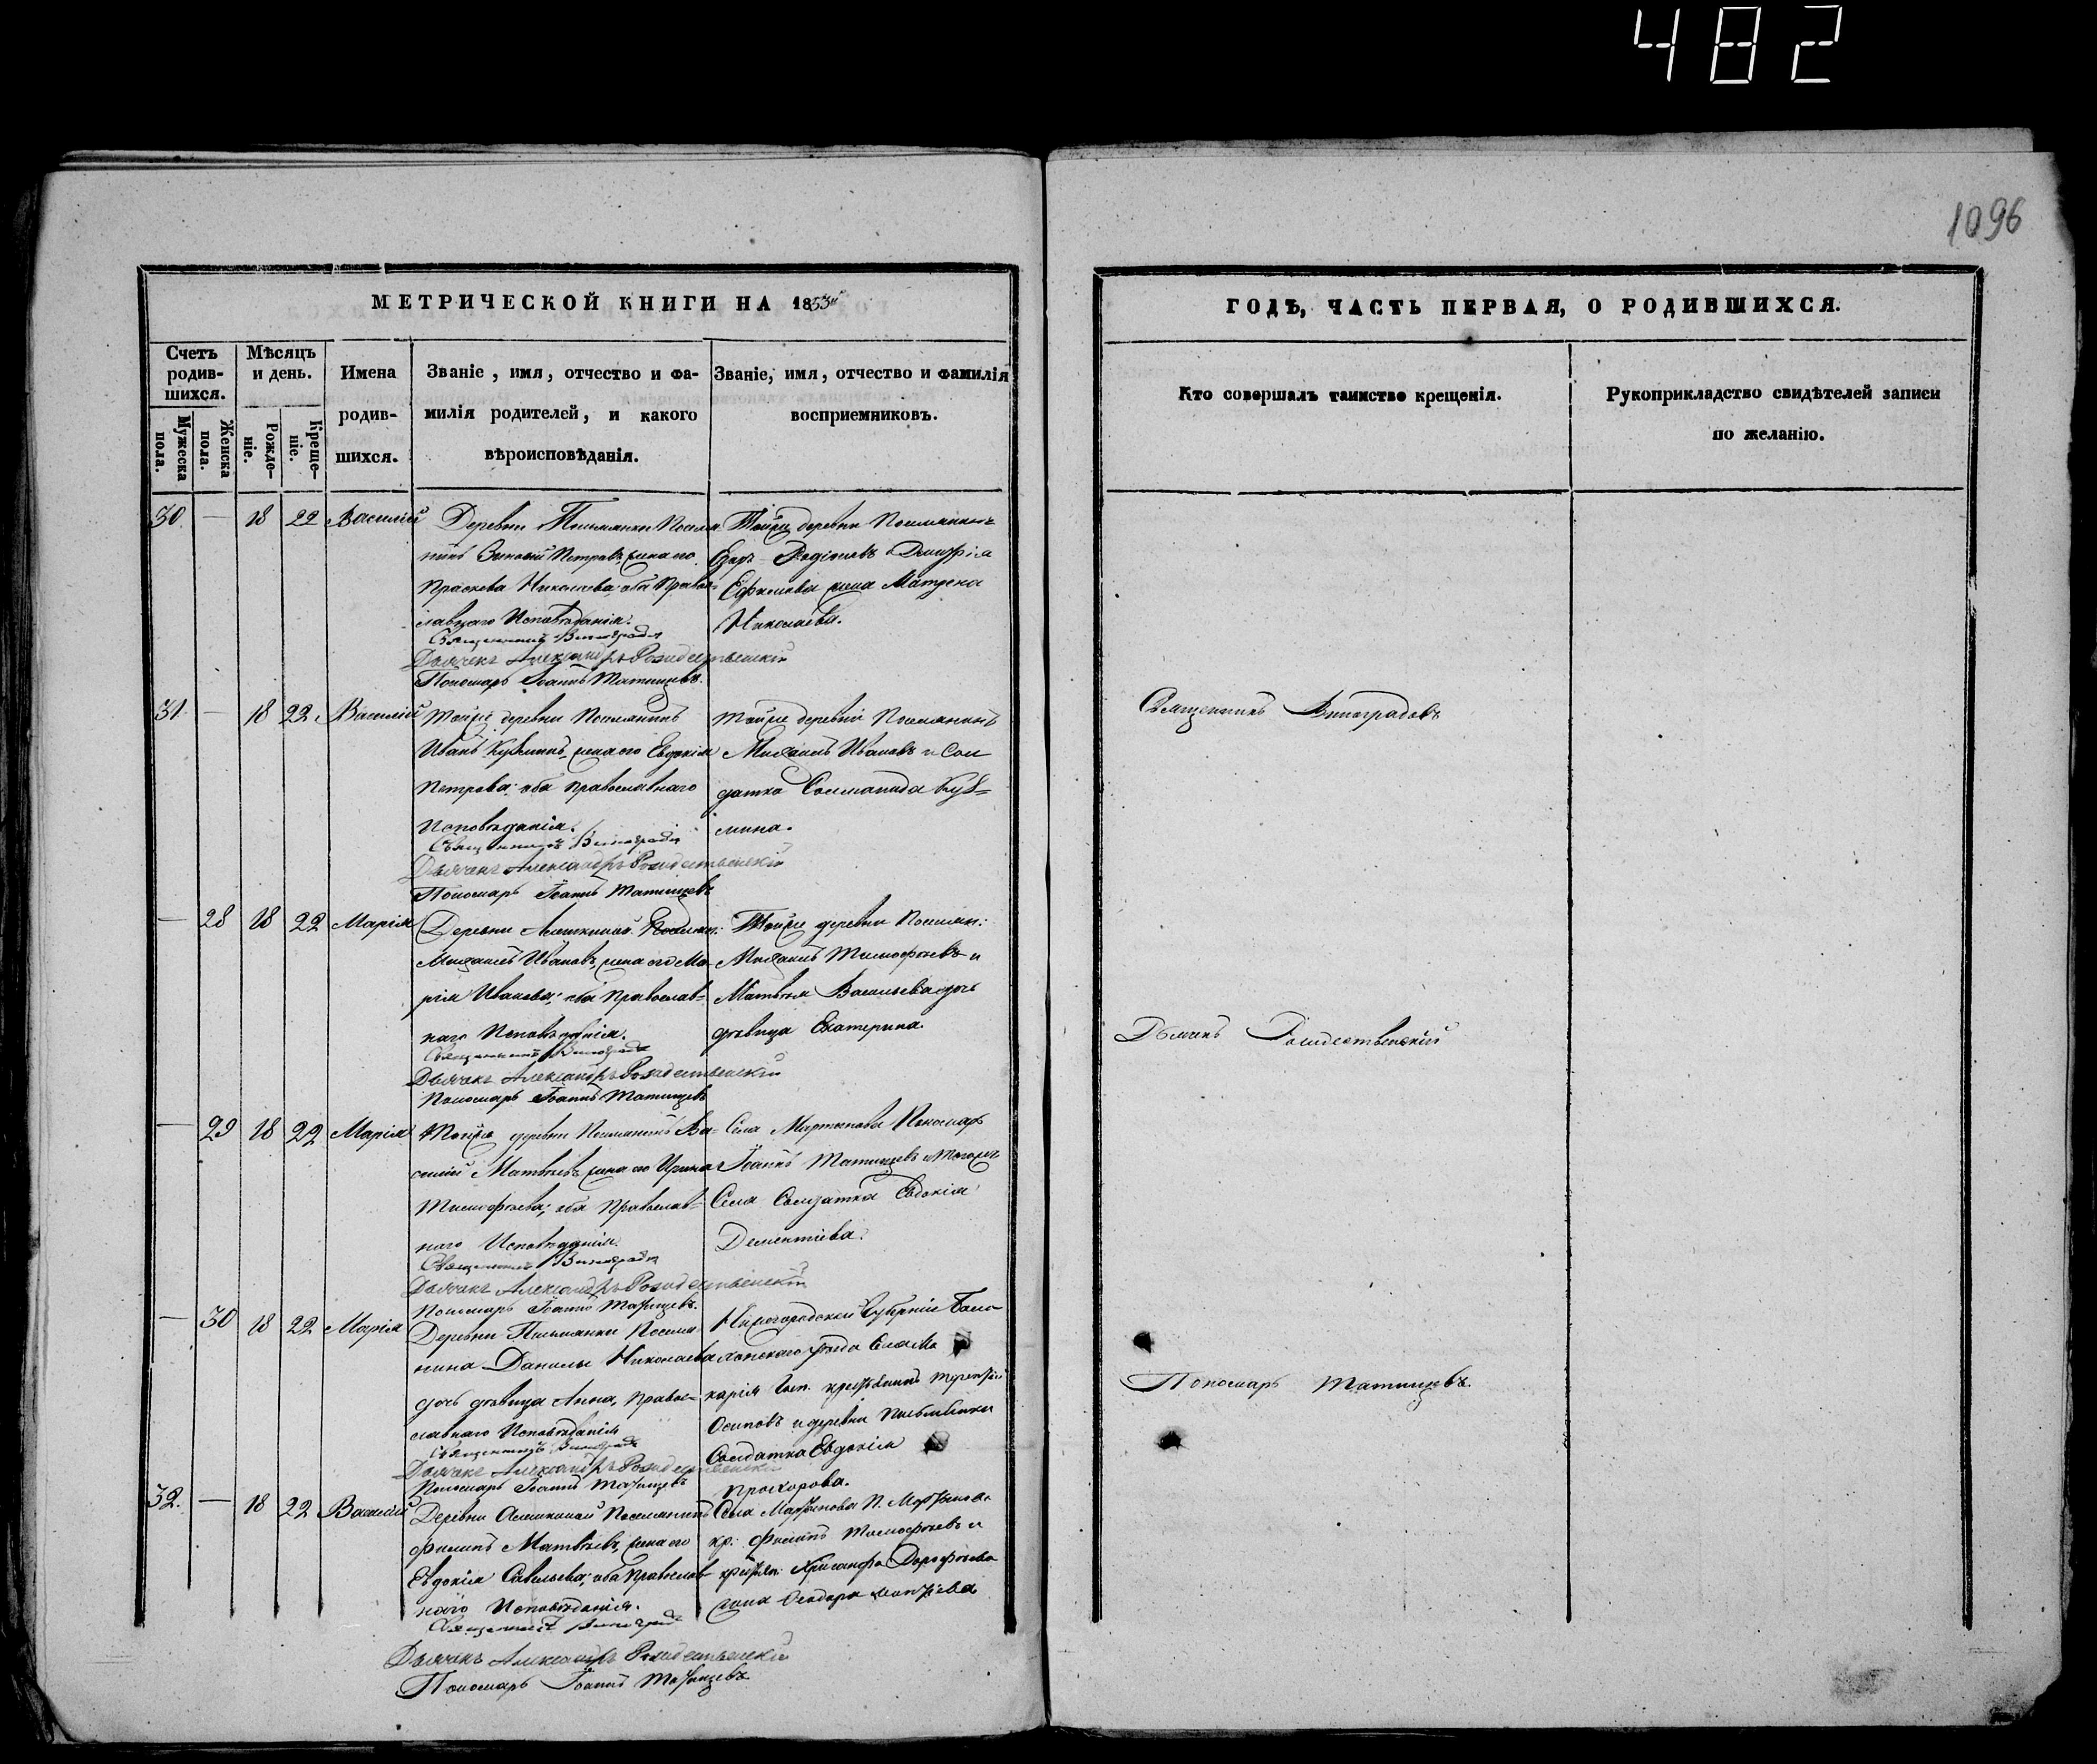 482
1096
МЕТРИЧЕСКОЙ КНИГИ НА 1853й
Счетъ родив-шихся.
Мѣсяцъ и день.
Имена родив-шихся.
Званіе, имя, отчество и фа-
милія родителей, и какого
вѣроисповѣданія.
Званіе, имя, отчество и фамилія
восприемниковъ.
Мужеска пола.
Женска пола.
Рожде-ніе.
Креще-ніе.
30 — 18 22 Василій
Деревни Письмянки Поселя-
нинъ Зиновій Петровъ, жена его
Праскева Николаева; оба Право-
славнаго Исповѣданія.
Священникъ Виноградовъ
Дьячекъ Александръ Рождественскій
Пономарь Іоаннъ Татищевъ.
Тойже деревни Поселянинъ
Егоръ Родіоновъ и Димитрія
Ефимова жена Матрена
Николаева.
31 — 18 22 Василій
Тойже деревни Поселянинъ
Иванъ Кузминъ, жена его Евдокія
Петрова; оба православнаго
Исповѣданія.
Священникъ Виноградовъ
Дьячекъ Александръ Рождественскій
Пономарь Іоаннъ Татищевъ
Тойже деревни Поселянинъ
Михаилъ Ивановъ и Сол
датка Соломанида Куз=
мина.
— 28 18 22 Марія
Деревни Поселян:
Михаилъ Ивановъ, жена его Ма-
рія Иванова; оба Православ-
наго Исповѣданія.
Священникъ Виноградовъ
Дьячекъ Александръ Рождественскій
Пономарь Іоаннъ Татищевъ
Тойже деревни Поселян:
Михаилъ Тимофѣевъ и
Матвѣя Васильева дочь
дѣвица Екатерина.
— 29 18 22 Марія
Тойже деревни Поселянинъ Ва-
силій Матвѣевъ, жена его Ирина
Тимофѣева; оба Православ-
наго Исповѣданія.
Священникъ Виноградовъ
Дьячекъ Александръ Рождественскій
Пономарь Іоаннъ Татищевъ.
Села Мартынова Пономарь
Іоаннъ Татищевъ и тогоже
Села Солдатка Евдокія
Дементіева.
— 30 18 22 Марія
Деревни Письмянки Поселя
нина Данилы Николаева
дочь дѣвица Анна, Право-
славнаго Исповѣданія
Священникъ Виноградовъ
Дьячекъ Александръ Рождественскій
Пономарь Іоаннъ Татищевъ
Нижегородской Губерніи Бала
хонскаго уѣзда Села Ма
карія Госп. крестьянинъ Терентій
Осиповъ и деревни Письмянки
Солдатка Евдокія
Прохорова.
32. — 18 22 Василій
Деревни Поселянинъ
Филипъ Матвѣевъ, жена его
Евдокія Савельева; оба Православ-
наго Исповѣданія.
Священникъ Виноградовъ
Дьячекъ Александръ Рождественскій
Пономарь Іоаннъ Татищевъ
Села Мартынова
кр: Филипъ Тимофѣевъ и
Хрисанфа Дорофѣева
жена Феодора
ГОДЪ, ЧАСТЬ ПЕРВАЯ, О РОДИВШИХСЯ.
Кто совершалъ таинство крещенія.
Рукоприкладство свидѣтелей записи
по желанію.
Священникъ Виноградовъ
Дьячекъ Рождественскій
Пономарь Татищевъ.